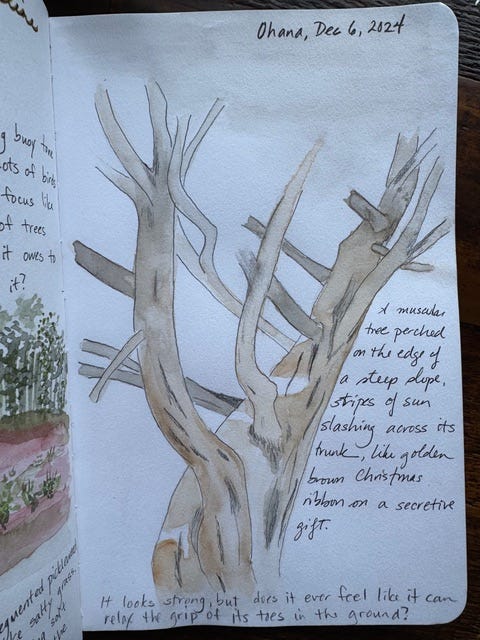 g buoy tree
ots of birds
focus like
of trees
it owes to
it?
Ohana, Dec 6, 2024
A muscular
tree perched
on the edge of
a steep slope,
stripes of sun
slashing across its
trunk, like golden
brown Christmas
ribbon on a secretive
gift.
It looks strong, but does it ever feel like it can
relax the grip of its toes in the ground?
equented pickleweed
salty grass.
salt
the